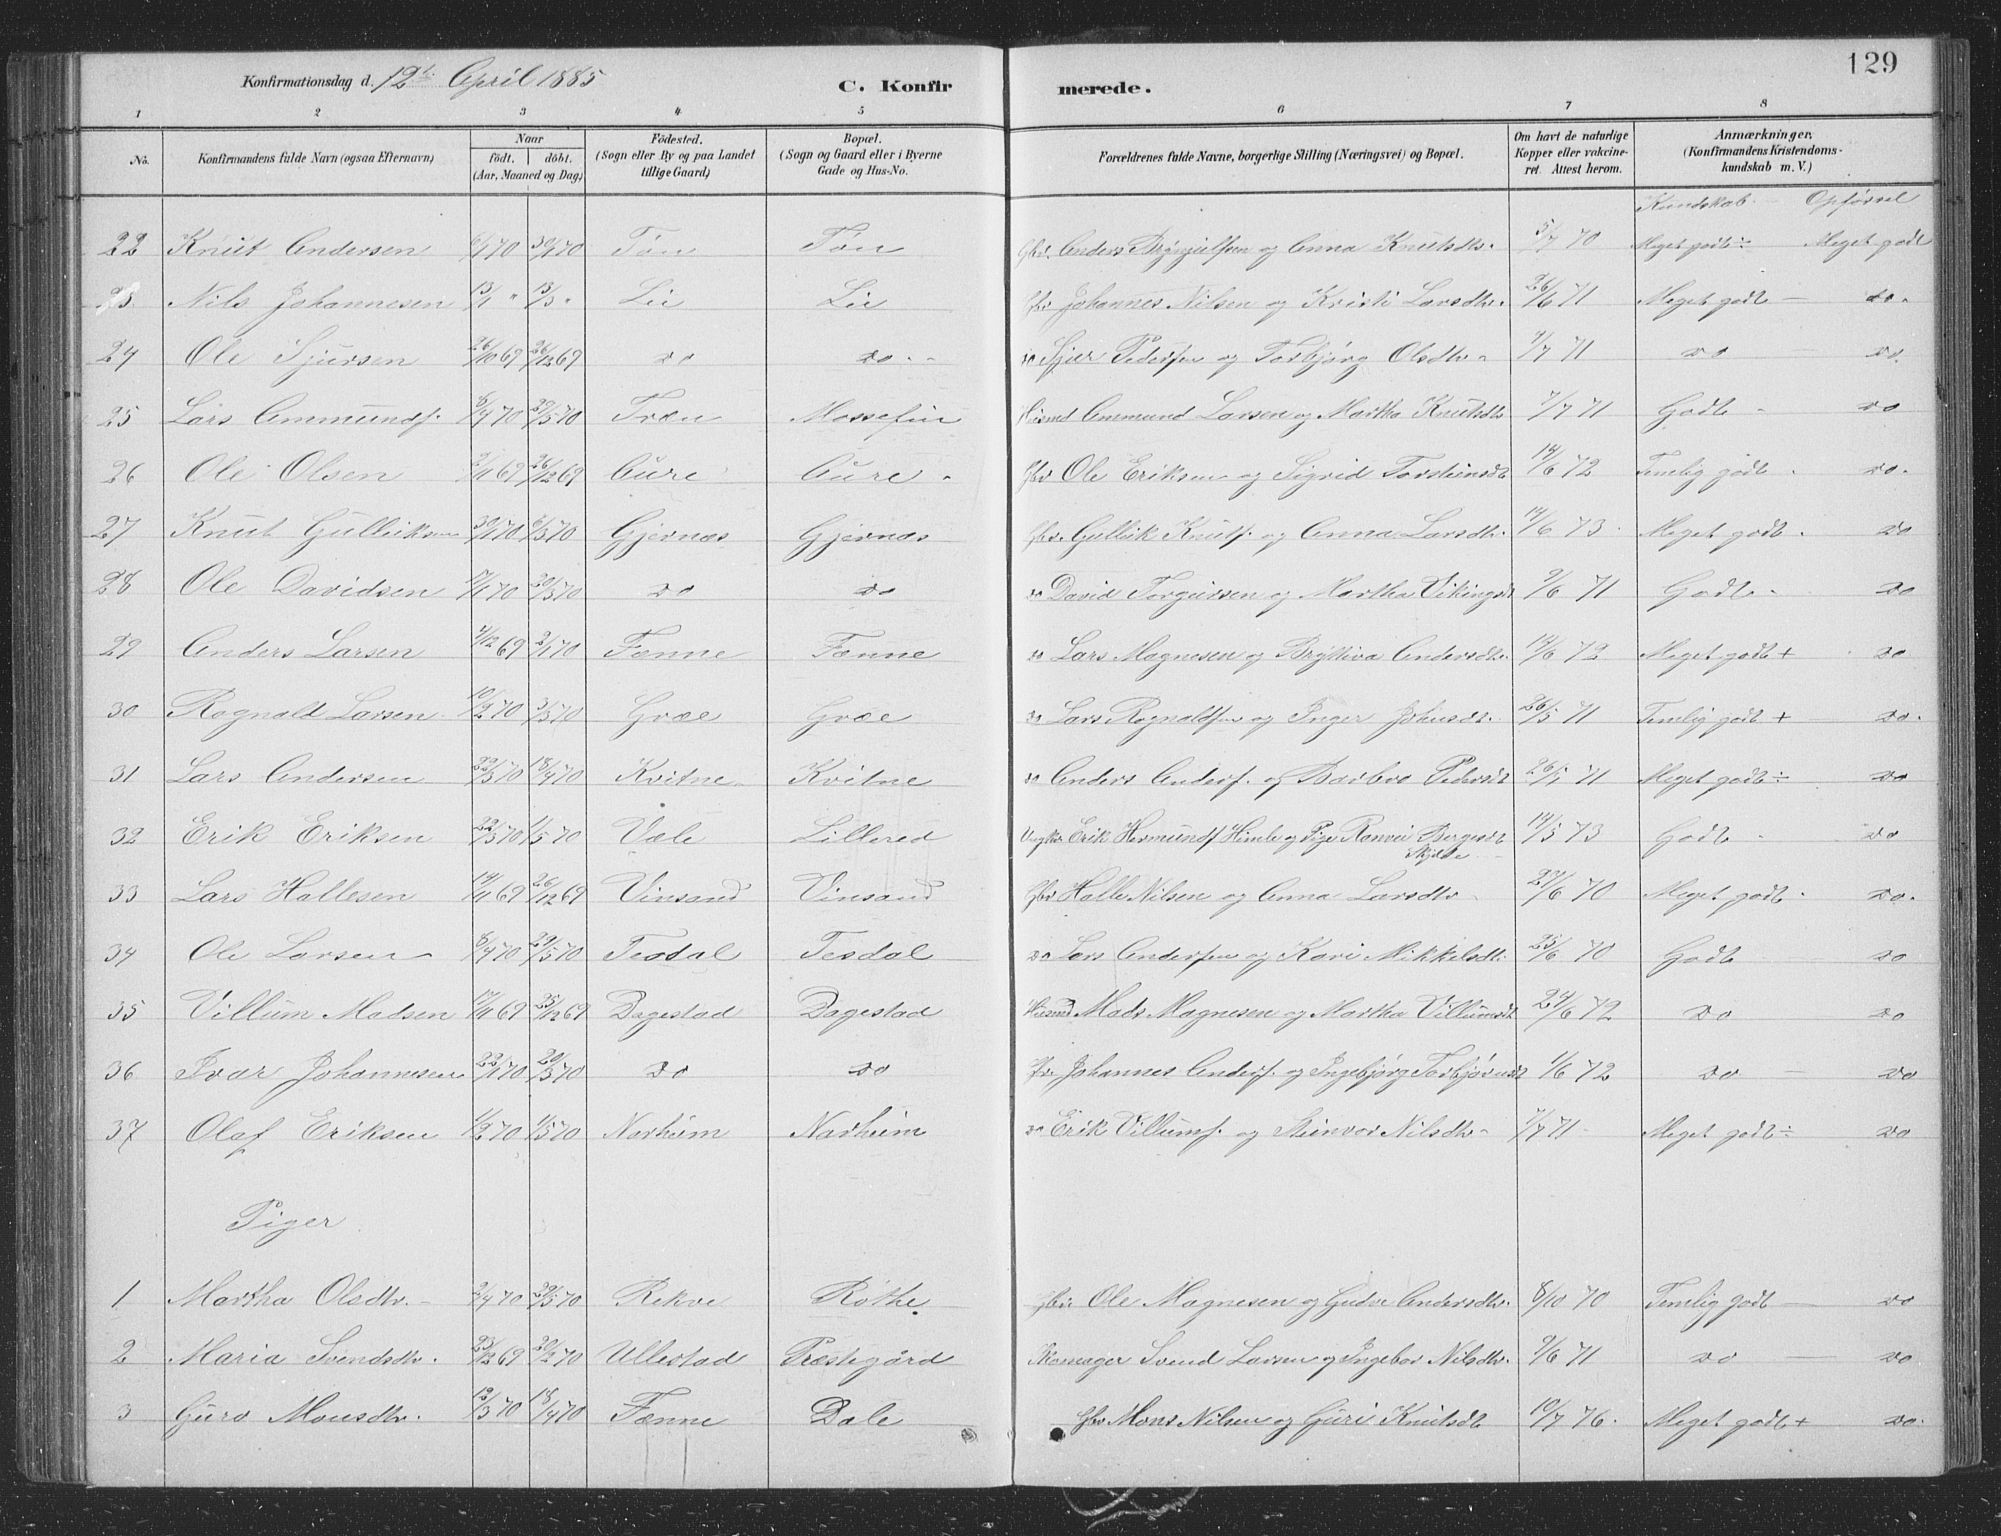 129
Konfirmationsdag d. 12te April 1885
C. Konfir merede.
1 2 3 4 5 6 7 8
No. Konfirmandens fulde Navn (ogsaa Efternavn) Naar født. døbt. (Aar, Maaned og Dag) Fødested. (Sogn eller By og paa Landet tillige Gaard) Bopæl. (Sogn og Gaard eller i Byerne Gade og Hus-No. Forældrenes fulde Navne, borgerlige Stilling (Næringsvei) og Bopæl. Om havt de naturlige Kopper eller vakcineret. Attest herom. Anmærkninger. (Konfirmandens Kristendomskundskab m. V.)
Kundskab. Opførsel
22 Knut Andersen 6/1 70 30/1 70 Tøn Tøn Gbr. Anders Brynjulfsen og Anna Knutsdtr. 5/7 70 Meget godt ÷ Meget godt
23 Nils Johannesen 15/1 " 13/3 " Lie Lie Gbr Johannes Nilsen og Kristi Larsdtr. 26/6 71 Meget godt — do.
24 Ole Sjursen 26/10 69 26/12 69 do do Do Sjur Pedersen og Torbjørg Olsdtr 9/7 71 do do.
25 Lars Ammunds. 8/4 70 29/5 70 Træn Mossefin Husmd Ammund Larsen og Martha Knutsdtr 7/7 71 Godt do
26 Ole Olsen 2/11 69 26/12 69 Aure Aure Gbr Ole Eriksen og Sigrid Torsteinsdt 14/6 72 Temlig godt do.
27 Knut Gulliksen 30/1 70 6/3 70 Gjernæs Gjernæs Gbr. Gullik Knuts. og Anna Larsdtr. 14/6 73 Meget godt do
28 Ole Davidsen 5/1 70 20/3 70 do do do David Torgiersen og Martha Vikingsdt 9/6 71 Godt do
29 Anders Larsen 4/12 69 2/1 70 Fænne Fænne do Lars Magnesen og Bryttiva Andersdtr. 14/6 72 Meget godt + do
30 Rognald Larsen 10/2 70 3/3 70 Græe Græe do Lars Rognaldsen og Inger Johnsdt. 26/5 71 Temlig godt + do.
31 Lars Andersen 22/3 70 18/4 70 Kvitne Kvitne do Anders Anders. og Barbro Pedersdt 26/5 71 Meget godt ÷ do
32 Erik Eriksen 22/3 70 1/5 70 Væle Lillered Ungkar Erik Hermunds. Himle og Pige Ranvei Børgesdt Skjelde 14/5 73 Godt do
33 Lars Hallesen 14/11 69 26/12 69 Vinsand Vinsand Gbr Halle Nilsen og Anna Larsdtr 27/6 70 Meget godt do.
34 Ole Larsen 8/4 70 29/5 70 Tesdal Tesdal do Lars Andersen og Kari Mikkelsdt. 25/6 70 Godt do
35 Villum Madsen 17/11 69 25/12 69 Dagestad Dagestad Husmd Mads Magnesen og Martha Villumsdt 24/6 72 do do
36 Ivar Johannesen 22/1 70 20/3 70 do do Gbr. Johannes Anders. og Ingebjørg Torbjørnsdt 1/6 72 do — do
37 Olaf Eriksen 1/2 70 1/5 70 Norheim Norheim do Erik Villums. og Steinvor Nilsdtr 7/7 71 Meget godt ÷ do
Piger
1 Martha Olsdtr. 2/4 70 29/5 70 Rekve Røthe Gbr. Ole Magnesen og Gudve Andersdtr. 8/10 70 Temlig godt — do
2 Maria Svendsdtr. 23/12 69 2/2 70 Ullestad Præstegård Skomager Svend Larsen og Ingebor Nilsdtr. 9/6 71 do — do
3 Guro Monsdtr. 12/3 70 18/4 70 Fænne Dale Gbr Mons Nilsen og Guri Knutsdt 10/7 76. Meget godt + do.